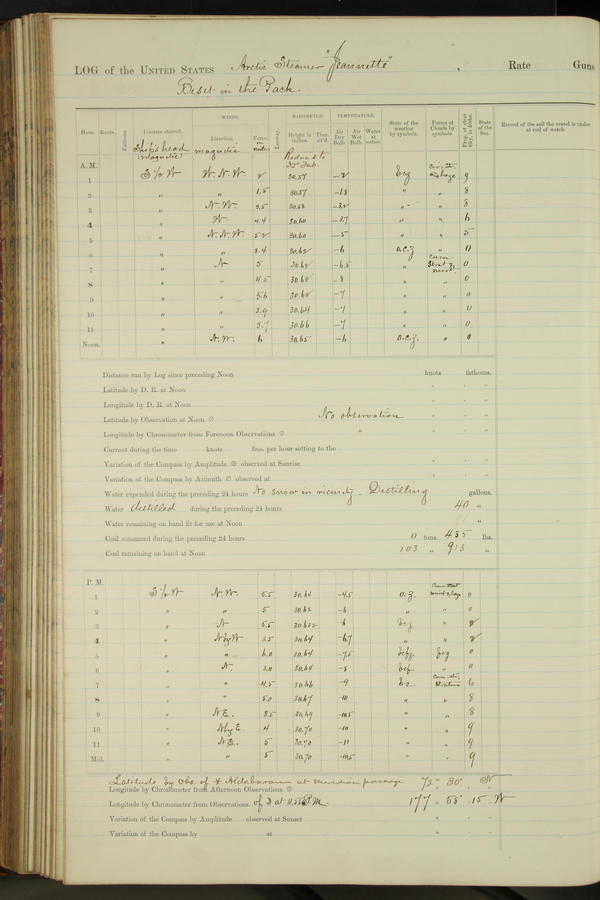 LOG of the UNITED STATES Arctic Steamer "Jeannette" , Rate Guns
Beset in the Pack.
WINDS. BAROMETER. TEMPERATURE.
Hour. Knots. Fathoms. Courses steered. Direction. Force. Leeway. Height in inches. Ther. att'd. Air Dry Bulb. Air Wet Bulb. Water at surface. State of the weather by symbols. Forms of Clouds by symbols. Prop. of clear sky, in 10ths. State of the Sea. Record of the sail the vessel is under at end of watch.
Ship's head (magnetic) magnetic Reduced to 32° Fah.
A. M.
1 S ½ W W.N.W 2 30.57 -2 9
2 " " 1.5 30.57 -1.8 " " 8
3 " N.W. 3.5 30.58 " " 8
4 " W. 4.4 30.60 -3.7 " " 6
5 " N.N.W 5.2 30.60 -5 " " 5
6 " " 3.4 30.62 -6 o.c.z " 0
7 " N 5 30.62 -6.5 " 0
8 " " 4.5 30.62 -8 " " 0
9 " " 5.6 30.62 -7 " " 0
10 " " 3.9 30.64 -7 " " 0
11 " " 5.7 30.66 -7 " " 0
Noon. " N.W. 6 30.65 -6 o.c.z. " 0
Distance run by Log since preceding Noon knots fathoms.
Latitude by D. R. at Noon ° ' "
Longitude by D. R. at Noon ° ' "
Latitude by Observation at Noon ☉ No observation ° ' "
Longitude by Chronometer from Forenoon Observations ☉ " ° ' "
Current during the time knots fms. per hour setting to the
Variation of the Compass by Amplitude ☉ observed at Sunrise ° ' "
Variation of the Compass by Azimuth ☉ observed at ° ' "
Water expended during the preceding 24 hours No snow in vicinity. Distilling gallons.
Water distilled during the preceding 24 hours 40 "
Water remaining on hand fit for use at Noon "
Coal consumed during the preceding 24 hours 0 tons. 435 lbs.
Coal remaining on hand at Noon 103 " 913 "
P. M.
1 S ½ W N.W. 5.5 30.64 -4.5 o.z. 0
2 " " 5 30.62 -6 " " 0
3 " N 5.5 -6 "
4 " N by W 3.5 30.64 -6.7 " "
5 " " 6.0 30.64 -7.5 fog 0
6 " N. 3.0 30.64 -8 " 0
7 " " 4.5 30.66 -9 6
8 " " 5.0 30.67 -10 " " 8
9 " N.E. 3.5 30.69 -10.5 " " 8
10 " N by E. 4 30.70 -10 " " 9
11 " N.E. 5 30.70 -11 " " 9
Mid. " " 5 30.70 -10.5 " " 9
Latitude by Obs. of * Aldebaran at meridian passage 72° 30' N
Longitude by Chronometer from Afternoon Observations ☉
Longitude by Chronometer from Observations of 177° 58' 15" W
Variation of the Compass by Amplitude observed at Sunset ° ' "
Variation of the Compass by at ° ' "